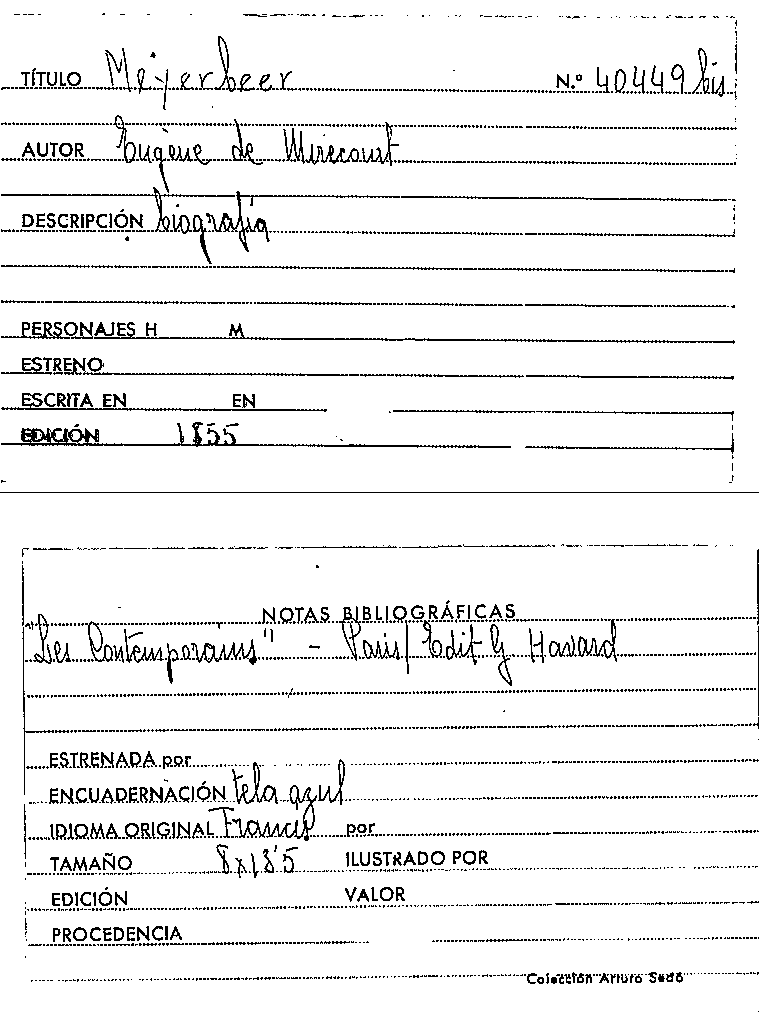 TÍTULO Meyerbeer N.º 40449 bis
AUTOR Eugène de Mirecourt
DESCRIPCIÓN biografía
PERSONAJES H M
ESTRENO
ESCRITA EN EN
EDICIÓN 1855
NOTAS BIBLIOGRÁFICAS
"Les Contemporains" - Paris/ Edit G Havard
ESTRENADA por
ENCUADERNACIÓN tela azul
IDIOMA ORIGINAL Francés por
TAMAÑO 8x13'5 ILUSTRADO POR
EDICIÓN VALOR
PROCEDENCIA
Colección Arturo Sedó